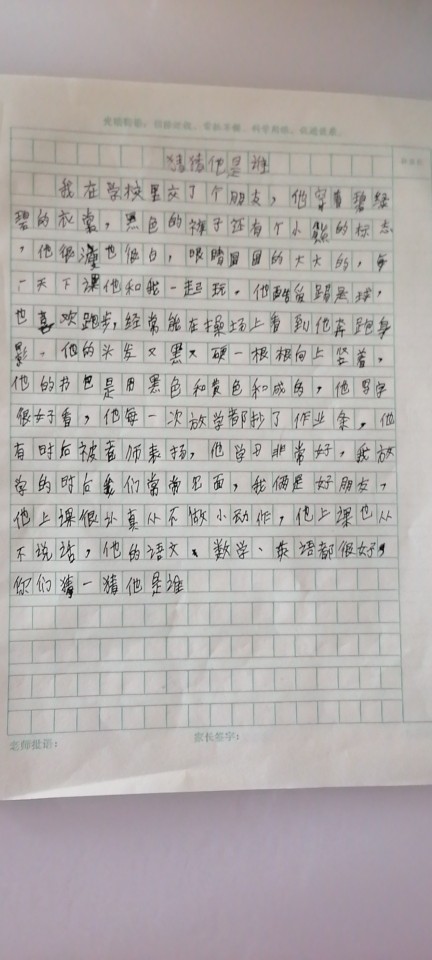 猜猜他是谁
我在学校里交了个朋友，他穿着碧绿
碧的衣裳，黑色的裤子还有个小熊的标志
，他很瘦也很白，眼睛圆圆的大大的，每
一天下课他和我一起玩。他酷爱踢足球，
也喜欢跑步，经常能在操场上看到他奔跑身
影。他的头发又黑又硬一根根向上竖着，
他的书包是用黑色和黄色和成的，他写字
很好看，他每一次放学都抄了作业条，他
有时后被老师表扬，他学习非常好，我放
学的时后我们常常见面，我俩是好朋友，
他上课很认真从不做小动作，他上课也从
不说话，他的语文、数学、英语都很好，
你们猜一猜他是谁
老师批语：
家长签字：